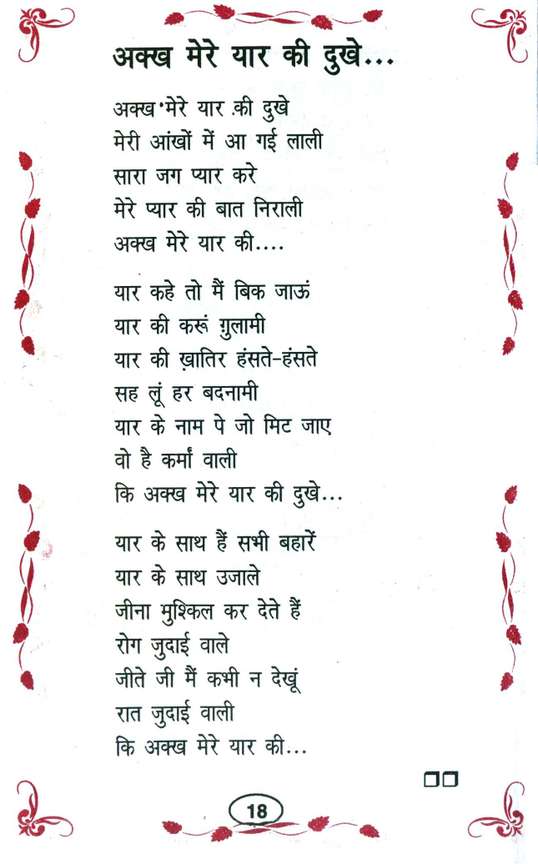 अक्ख मेरे यार की दुखे...
अक्ख मेरे यार की दुखे
मेरी आंखों में आ गई लाली
सारा जग प्यार करे
मेरे प्यार की बात निराली
अक्ख मेरे यार की....
यार कहे तो मैं बिक जाऊं
यार की करूं ग़ुलामी
यार की ख़ातिर हंसते-हंसते
सह लूं हर बदनामी
यार के नाम पे जो मिट जाए
वो है कर्मां वाली
कि अक्ख मेरे यार की दुखे...
यार के साथ हैं सभी बहारें
यार के साथ उजाले
जीना मुश्किल कर देते हैं
रोग जुदाई वाले
जीते जी मैं कभी न देखूं
रात जुदाई वाली
कि अक्ख मेरे यार की...
18